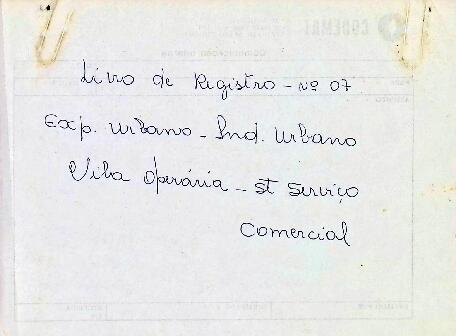 Livro de Registro - nº 07
Exp. Urbano - Ind. Urbano
Vila Operária - St Serviço
Comercial